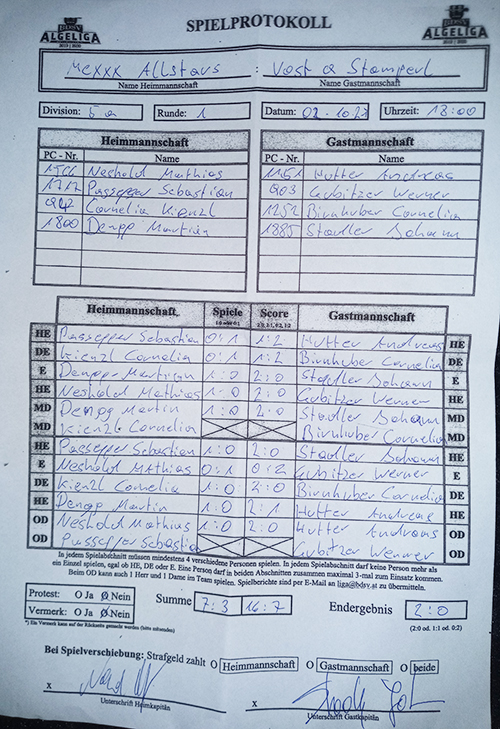 ALGELIGA
SPIELPROTOKOLL
ALGELIGA
Mexxx Allstars : Vost & Stamperl
Name Heimmannschaft Name Gastmannschaft
Division: 5a Runde: 1 Datum: 02.10.22 Uhrzeit: 18:00
Heimmannschaft Gastmannschaft
PC - Nr. Name PC - Nr. Name
Neshold Mathias 1151 Hutter Andreas
1712 Passepper Sebastian 903 Gubitzer Werner
942 Cornelia Kienzl 1252 Birnhuber Cornelia
1800 Dengg Martin 1885 Stadler Johann
Heimmannschaft Spiele Score Gastmannschaft
1:0 oder 0:1 2:0, 2:1, 0:2, 1:2
HE Passepper Sebastian 0:1 1:2 Hutter Andreas HE
DE Kienzl Cornelia 0:1 1:2 Birnhuber Cornelia DE
E Dengg Martin 1:0 2:0 Stadler Johann E
HE Neshold Mathias 1:0 2:0 Gubitzer Werner HE
MD Dengg Martin 1:0 2:0 Stadler Johann MD
MD Kienzl Cornelia Birnhuber Cornelia MD
HE Passepper Sebastian 1:0 2:0 Stadler Johann HE
E Neshold Mathias 0:1 0:2 Gubitzer Werner E
DE Kienzl Cornelia 1:0 2:0 Birnhuber Cornelia DE
HE Dengg Martin 1:0 2:1 Hutter Andreas HE
OD Neshold Mathias 1:0 2:0 Hutter Andreas OD
OD Passepper Sebastian Gubitzer Werner OD
In jedem Spielabschnitt müssen mindestens 4 verschiedene Personen spielen. In jedem Spielabschnitt darf keine Person mehr als
ein Einzel spielen, egal ob HE, DE oder E. Eine Person darf in beiden Abschnitten zusammen maximal 3-mal zum Einsatz kommen.
Beim OD kann auch 1 Herr und 1 Dame im Team spielen. Spielberichte sind per E-Mail an liga@bdsv.at zu übermitteln.
Protest: O Ja O Nein Summe 7:3 16:7 Endergebnis 2:0
Vermerk: O Ja O Nein
*) Ein Vermerk kann auf der Rückseite gemacht werden (bitte ankreuzen) (2:0 od. 1:1 od. 0:2)
Bei Spielverschiebung: Strafgeld zahlt O Heimmannschaft O Gastmannschaft O beide
x x
Unterschrift Heimkapitän Unterschrift Gastkapitän